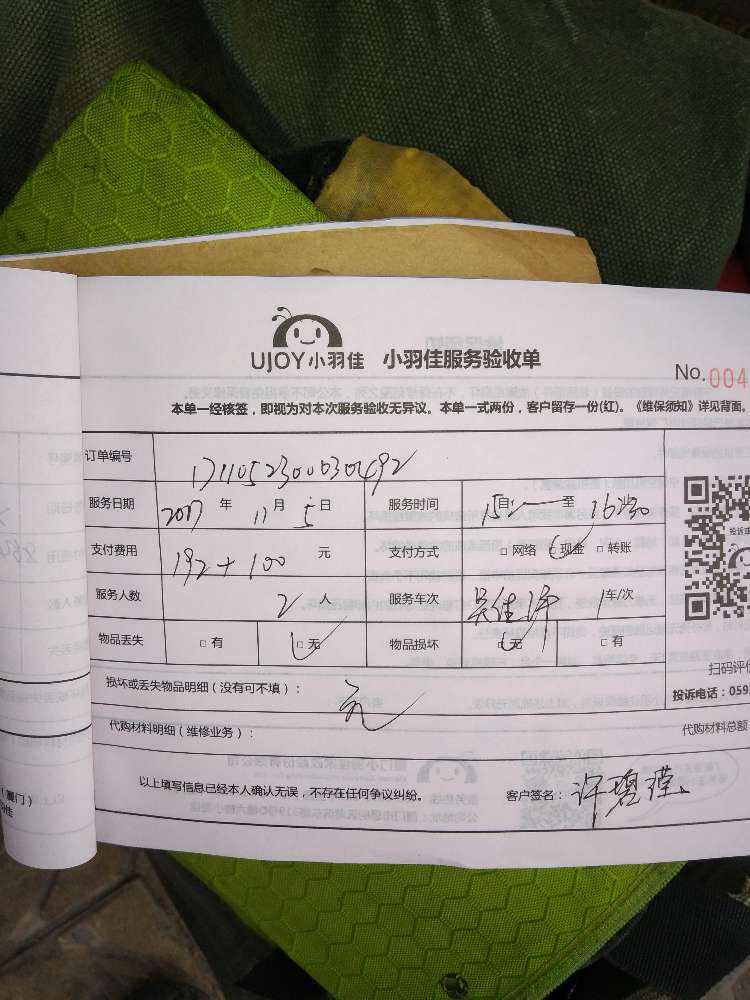 UJOY小羽佳 小羽佳服务验收单
No.004
本单一经核签，即视为对本次服务验收无异议。本单一式两份，客户留存一份(红)。《维保须知》详见背面。
订单编号
服务日期 2017 年 11 月 5 日 服务时间 15 自 至 16:30
支付费用 192+100 元 支付方式 □ 网络 □ 现金 □ 转账
服务人数 2 人 服务车次 1车/次
物品丢失 □ 有 □ 无 物品损坏 □ 无 □ 有
扫码评价
损坏或丢失物品明细（没有可不填）： 无
投诉电话：059
代购材料明细（维修业务）： 代购材料总额
以上填写信息已经本人确认无误，不存在任何争议纠纷。 客户签名：许碧